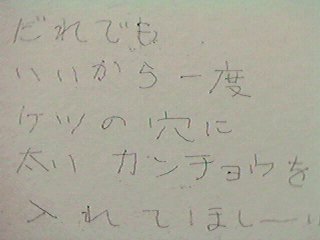 だれでも
いいから一度
ケツの穴に
太い カンチョウを
入れてほしーい